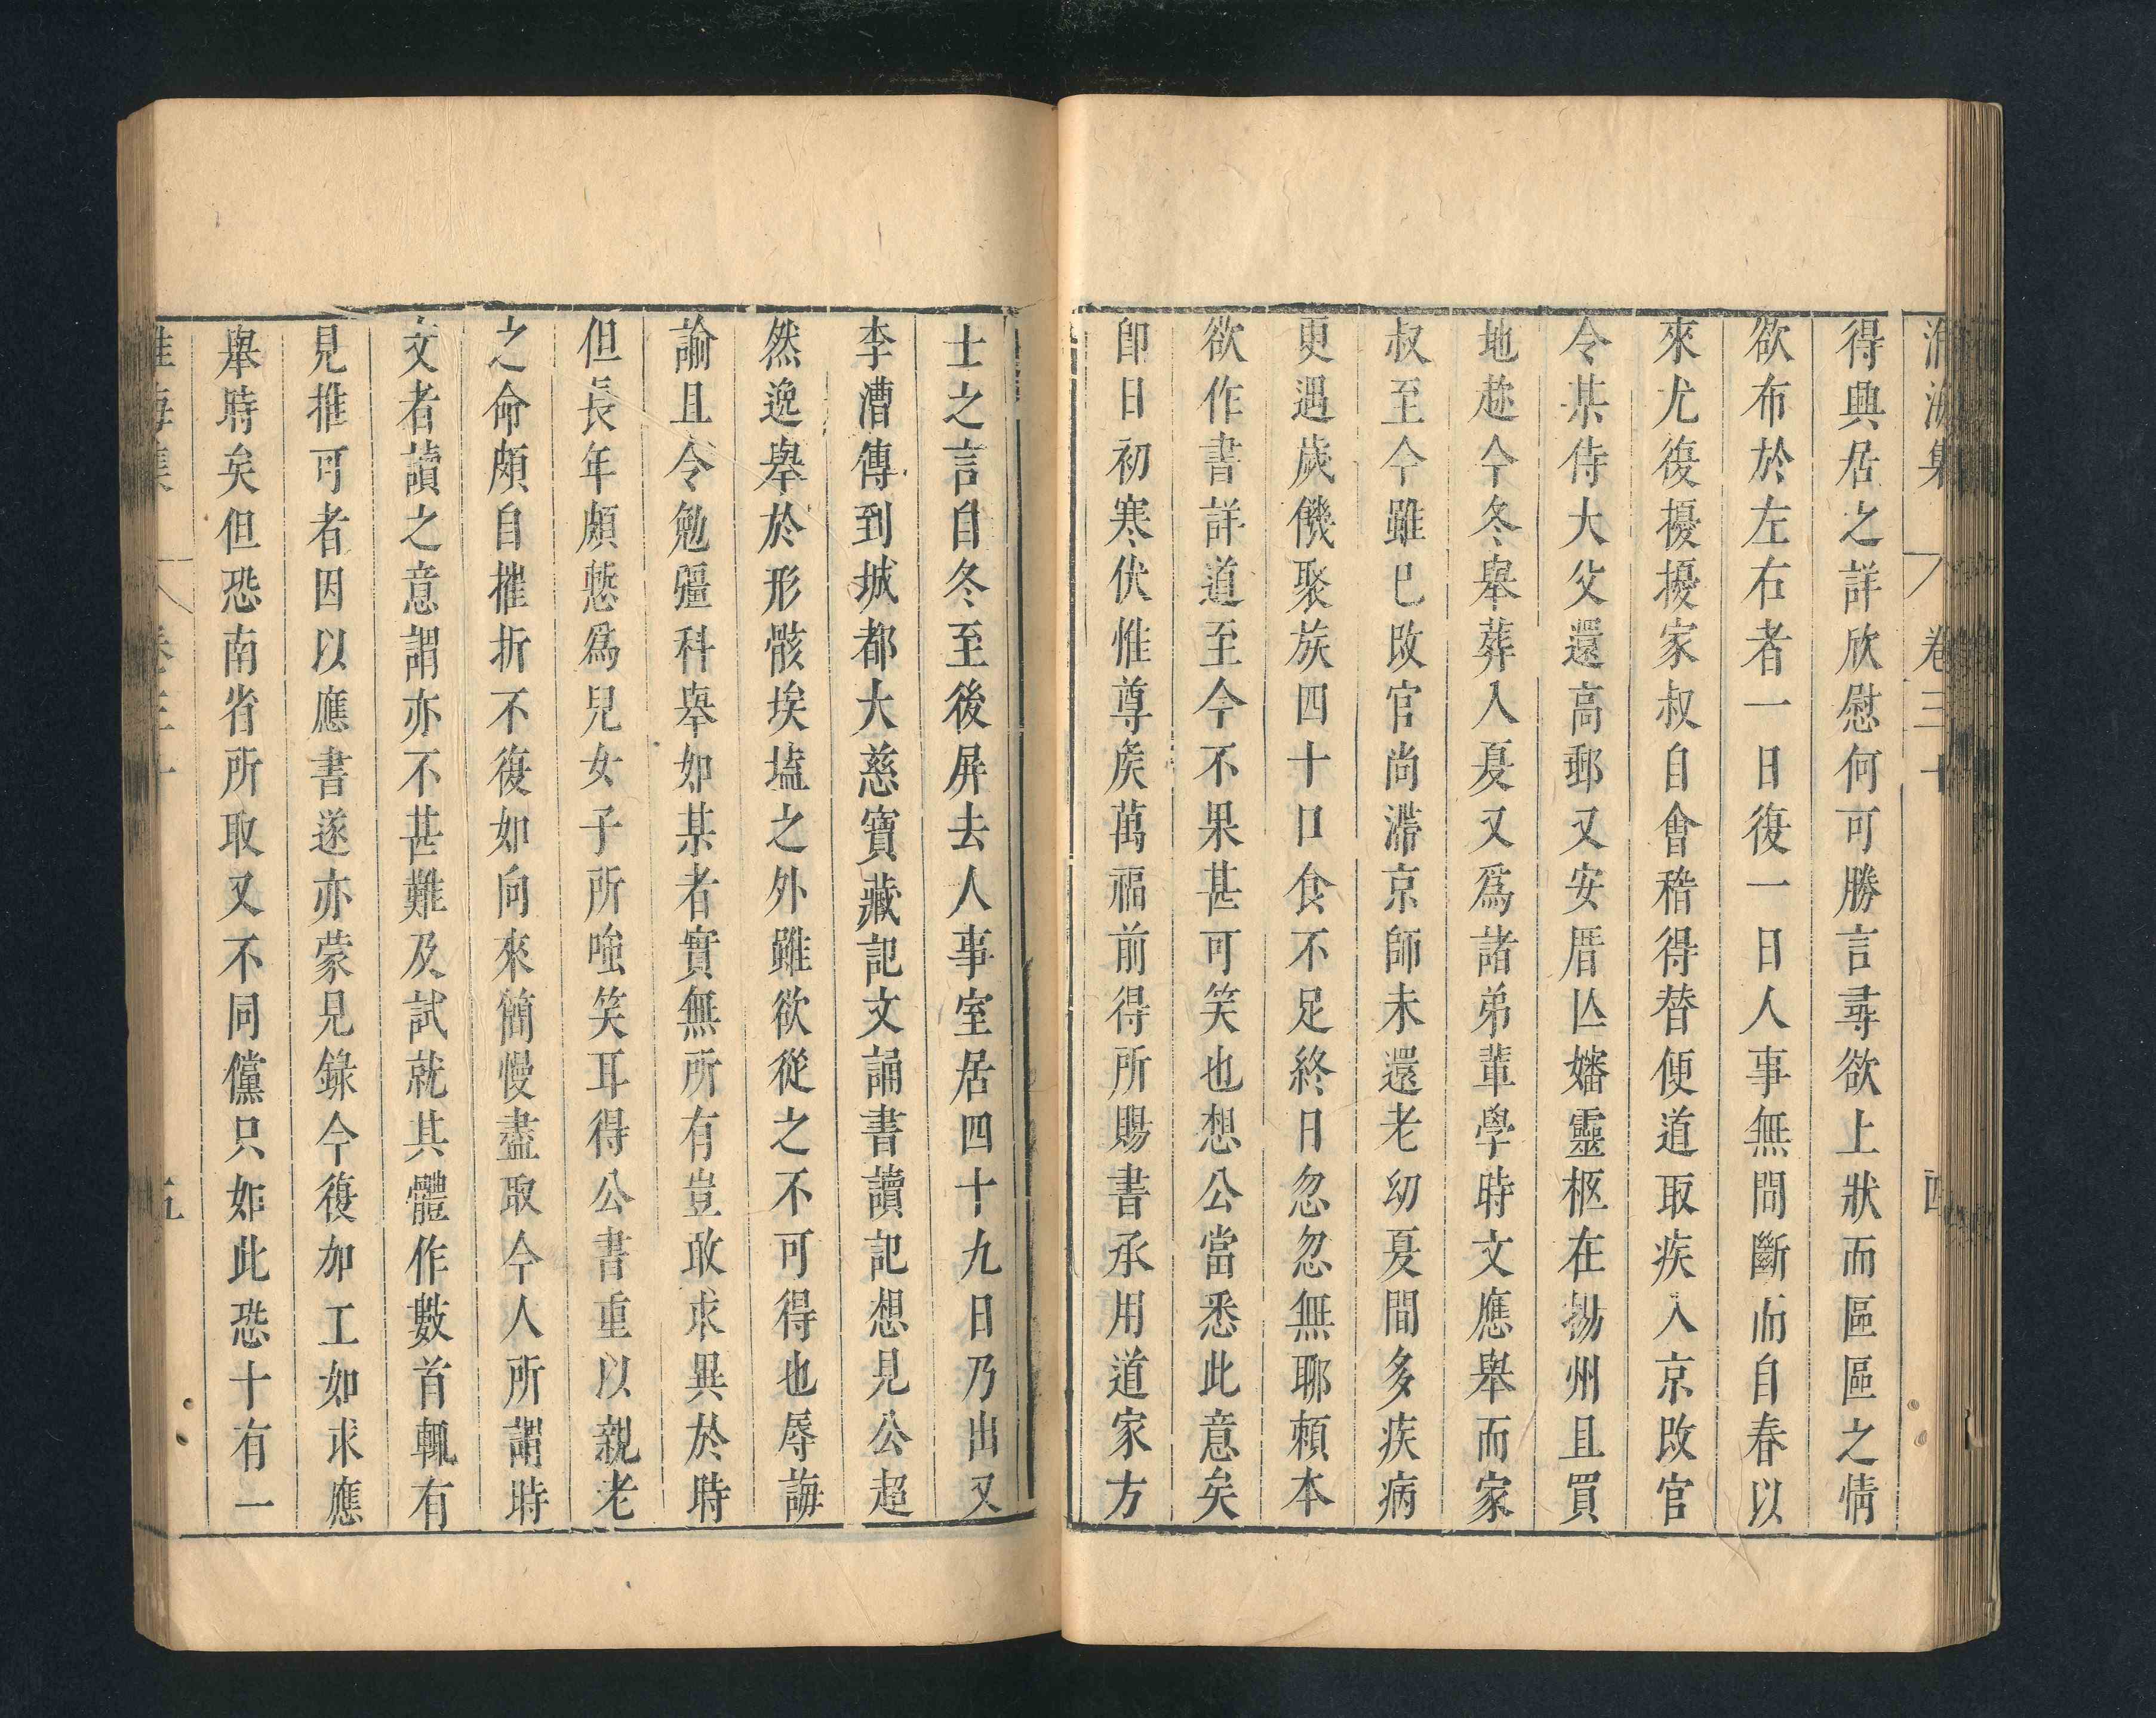 淮海集 卷三十 四
得興居之詳欣慰何可勝言尋欲上狀而區區之情
欲布於左右者一日復一日人事無間斷而自春以
來尤復擾擾家叔自會稽得替便道取疾入京改官
令某侍大父還高郵又安厝亾嬸靈柩在揚州且買
地趂今冬舉葬入夏又爲諸弟輩學時文應舉而家
叔至今雖已改官尚滯京師未還老幼夏間多疾病
更遇歲饑聚族四十口食不足終日忽忽無聊賴本
欲作書詳道至今不果甚可笑也想公當悉此意矣
卽日初寒伏惟尊矦萬福前得所賜書承用道家方
士之言自冬至後屏去人事室居四十九日乃出又
李漕傳到城都大慈寶藏記文誦書讀記想見公超
然逸舉於形骸埃壒之外雖欲從之不可得也辱誨
諭且令勉彊科舉如某者實無所有豈敢求異於時
但長年頗慙爲兒女子所嗤笑耳得公書重以親老
之命頗自摧折不復如向來簡慢盡取今人所謂時
文者讀之意謂亦不甚難及試就其體作數首輒有
見推可者因以應書遂亦蒙見錄今復加工如求應
舉時矣但恐南省所取又不同儻只如此恐十有一
淮海集 卷三十 五